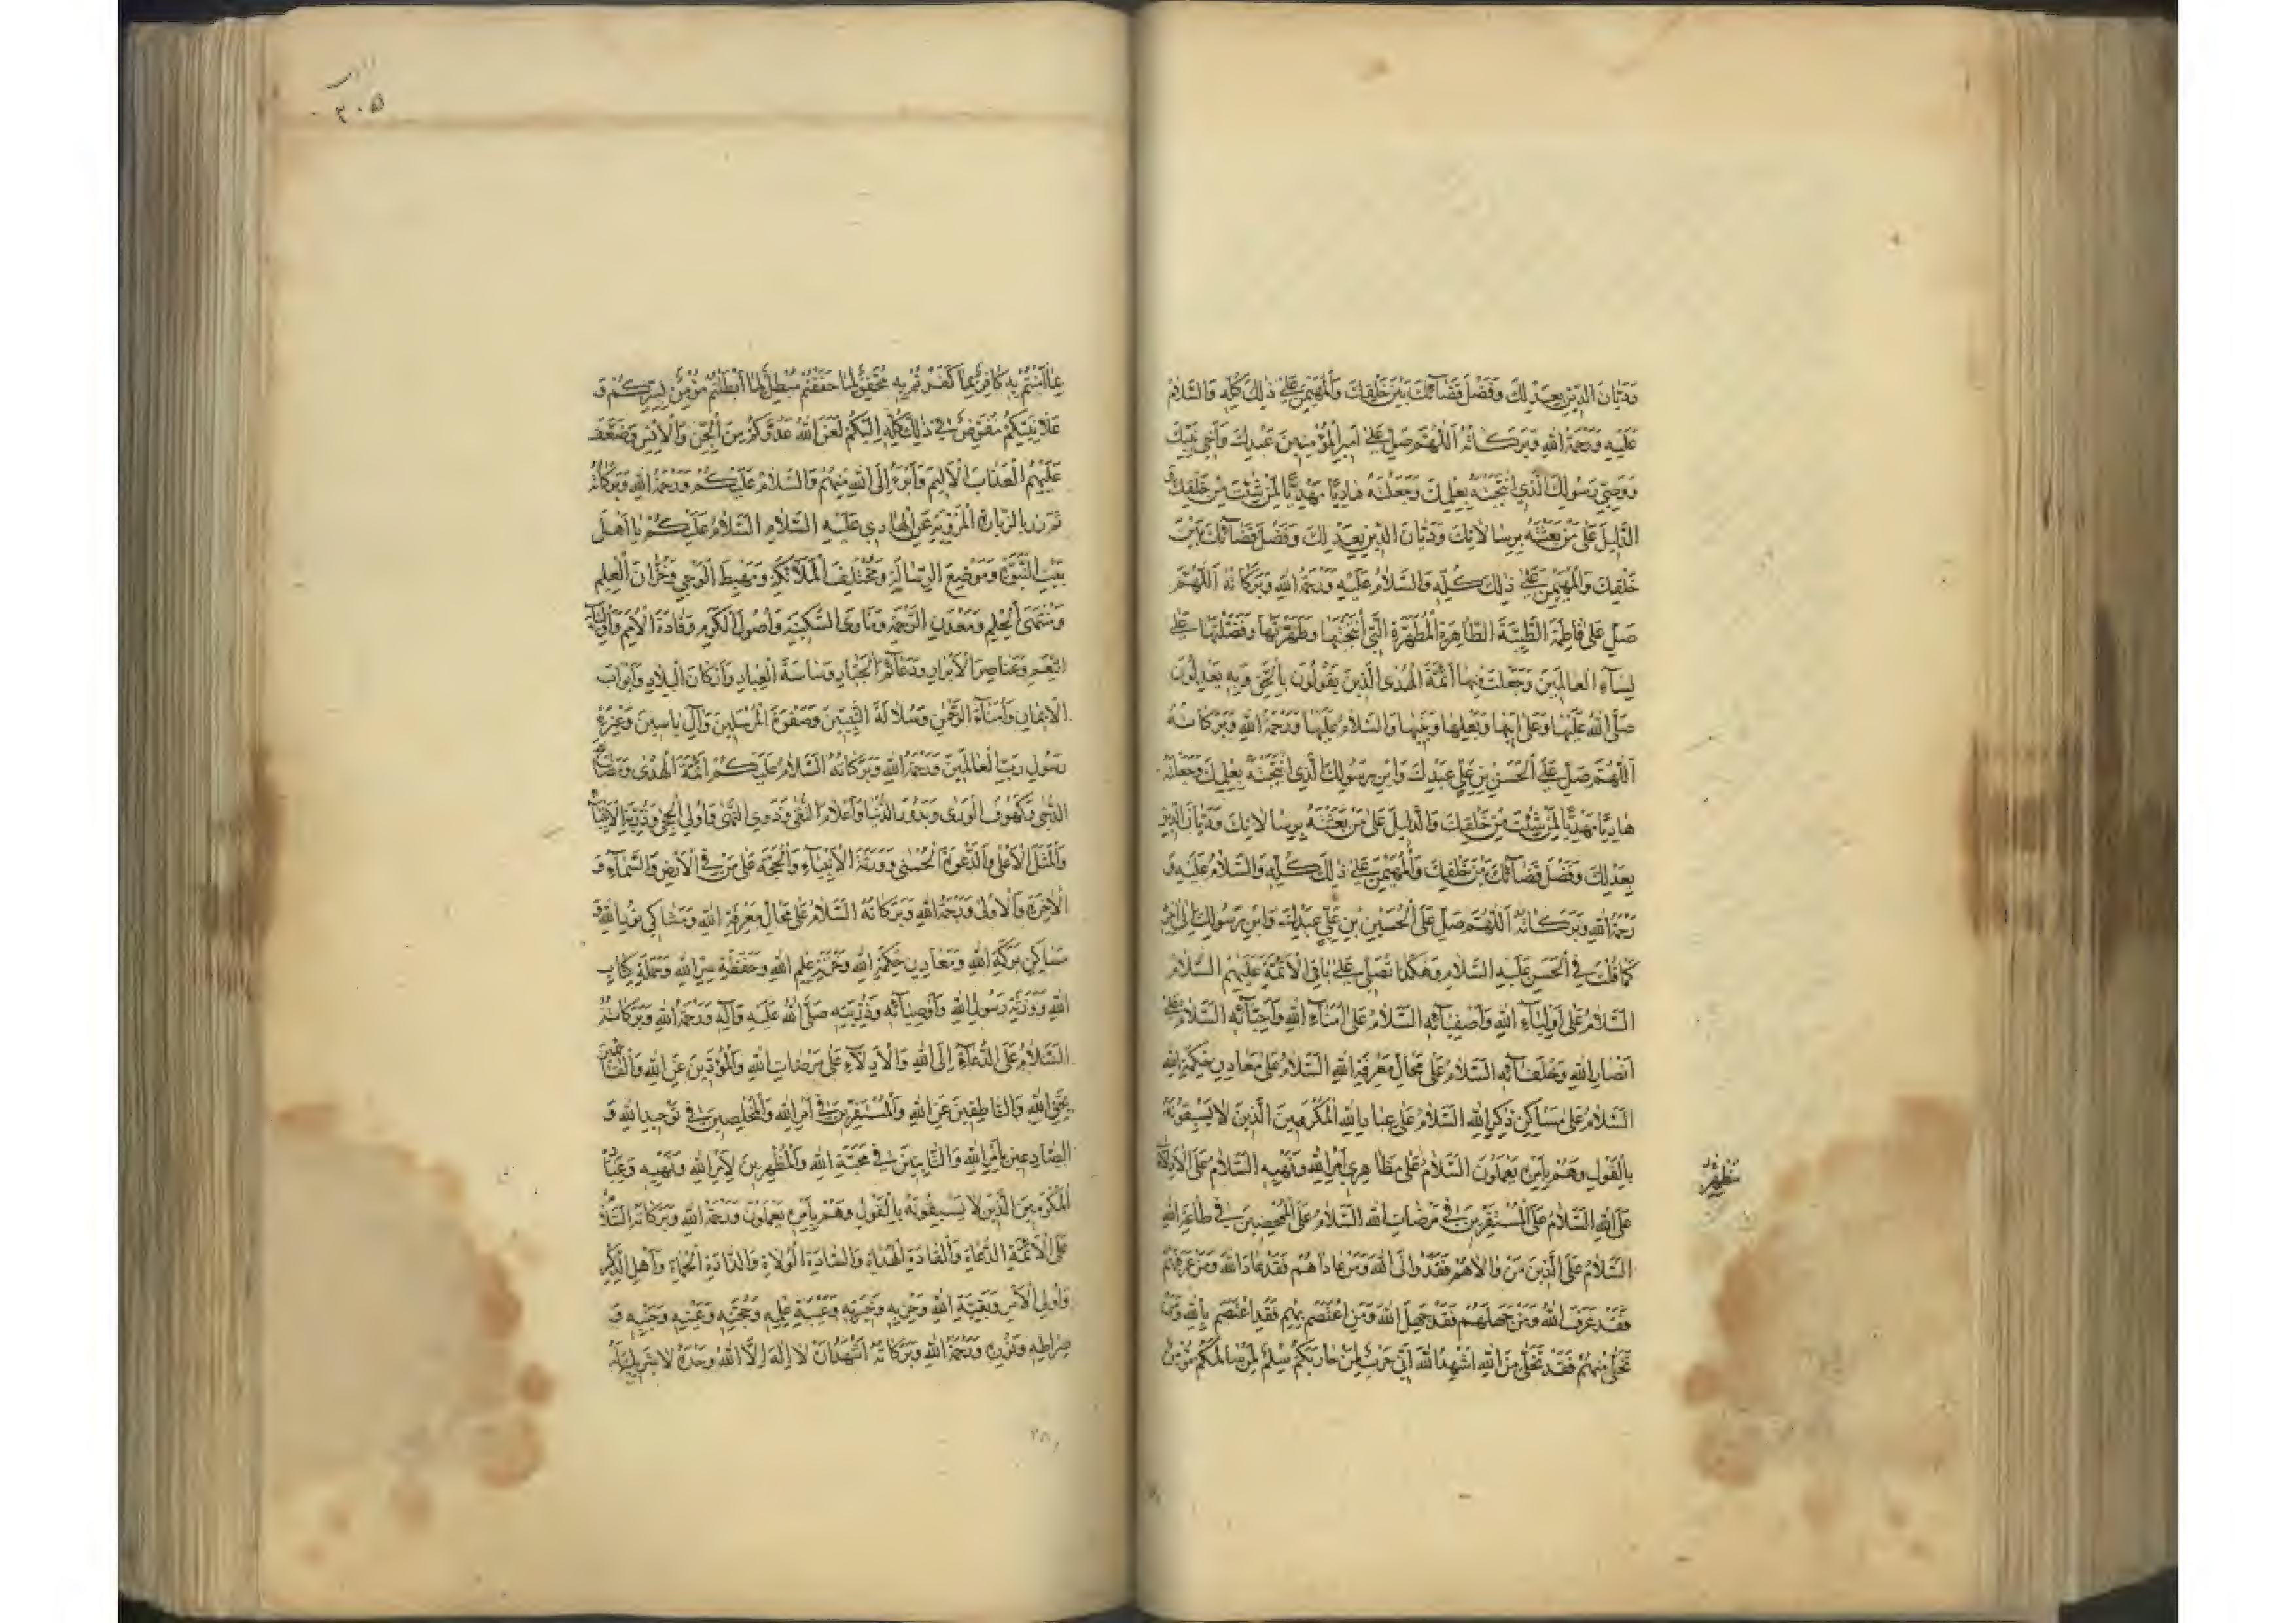 وَدَيَّانَ الدِّينِ بِعَدْلِكَ وَفَصْلَ قَضَائِكَ بَيْنَ خَلْقِكَ وَالْمُهَيْمِنَ عَلَى ذَلِكَ كُلِّهِ وَالسَّلَامُ
عَلَيْهِ وَرَحْمَةُ اللهِ وَبَرَكَاتُهُ اَللّهُمَّ صَلِّ عَلَى اَمِيرِ الْمُؤْمِنِينَ عَبْدِكَ وَاَخِي نَبِيِّكَ
وَوَصِيِّ رَسُولِكَ الَّذِي انْتَجَبْتَهُ بِعِلْمِكَ وَجَعَلْتَهُ هَادِيًا مَهْدِيًّا لِمَنْ شِئْتَ مِنْ خَلْقِكَ وَ
الدَّلِيلَ عَلَى مَنْ بَعَثْتَهُ بِرِسَالَاتِكَ وَدَيَّانَ الدِّينِ بِعَدْلِكَ وَفَصْلَ قَضَائِكَ بَيْنَ
خَلْقِكَ وَالْمُهَيْمِنَ عَلَى ذَلِكَ كُلِّهِ وَالسَّلَامُ عَلَيْهِ وَرَحْمَةُ اللهِ وَبَرَكَاتُهُ اَللّهُمَّ
صَلِّ عَلَى فَاطِمَةَ الطَّيِّبَةِ الطَّاهِرَةِ الْمُطَهَّرَةِ الَّتِي انْتَجَبْتَهَا وَطَهَّرْتَهَا وَفَضَّلْتَهَا عَلَى
نِسَاءِ الْعَالَمِينَ وَجَعَلْتَ مِنْهَا اَئِمَّةَ الْهُدَى الَّذِينَ يَقُولُونَ بِالْحَقِّ وَبِهِ يَعْدِلُونَ
صَلَّى اللهُ عَلَيْهَا وَعَلَى اَبِيهَا وَبَعْلِهَا وَبَنِيهَا وَالسَّلَامُ عَلَيْهَا وَرَحْمَةُ اللهِ وَبَرَكَاتُهُ
اَللّهُمَّ صَلِّ عَلَى الْحَسَنِ بْنِ عَلِيٍّ عَبْدِكَ وَابْنِ رَسُولِكَ الَّذِي انْتَجَبْتَهُ بِعِلْمِكَ وَجَعَلْتَهُ
هَادِيًا مَهْدِيًّا لِمَنْ شِئْتَ مِنْ خَلْقِكَ وَالدَّلِيلَ عَلَى مَنْ بَعَثْتَهُ بِرِسَالَاتِكَ وَدَيَّانَ الدِّينِ
بِعَدْلِكَ وَفَصْلَ قَضَائِكَ بَيْنَ خَلْقِكَ وَالْمُهَيْمِنَ عَلَى ذَلِكَ كُلِّهِ وَالسَّلَامُ عَلَيْهِ وَ
رَحْمَةُ اللهِ وَبَرَكَاتُهُ اَللّهُمَّ صَلِّ عَلَى الْحُسَيْنِ بْنِ عَلِيٍّ عَبْدِكَ وَابْنِ رَسُولِكَ اِلَى آخِرِهِ
كَمَا قُلْتَ فِي الْحَسَنِ عَلَيْهِ السَّلَامُ وَهَكَذَا تُصَلِّي عَلَى بَاقِي الْاَئِمَّةِ عَلَيْهِمُ السَّلَامُ
السَّلَامُ عَلَى اَوْلِيَاءِ اللهِ وَاَصْفِيَائِهِ السَّلَامُ عَلَى اُمَنَاءِ اللهِ وَاَحِبَّائِهِ السَّلَامُ عَلَى
اَنْصَارِ اللهِ وَخُلَفَائِهِ السَّلَامُ عَلَى مَحَالِّ مَعْرِفَةِ اللهِ السَّلَامُ عَلَى مَعَادِنِ حِكْمَةِ اللهِ
السَّلَامُ عَلَى مَسَاكِنِ ذِكْرِ اللهِ السَّلَامُ عَلَى عِبَادِ اللهِ الْمُكْرَمِينَ الَّذِينَ لَا يَسْبِقُونَهُ
بِالْقَوْلِ وَهُمْ بِاَمْرِهِ يَعْمَلُونَ السَّلَامُ عَلَى مَظَاهِرِي اَمْرِ اللهِ وَنَهْيِهِ السَّلَامُ عَلَى الْاَدِلَّاءِ
مُظْهِرِي
عَلَى اللهِ السَّلَامُ عَلَى الْمُسْتَقِرِّينَ فِي مَرْضَاتِ اللهِ السَّلَامُ عَلَى الْمُمَحَّصِينَ فِي طَاعَةِ اللهِ
السَّلَامُ عَلَى الَّذِينَ مَنْ وَالَاهُمْ فَقَدْ وَالَى اللهَ وَمَنْ عَادَاهُمْ فَقَدْ عَادَ اللهَ وَمَنْ عَرَفَهُمْ
فَقَدْ عَرَفَ اللهَ وَمَنْ جَهِلَهُمْ فَقَدْ جَهِلَ اللهَ وَمَنِ اعْتَصَمَ بِهِمْ فَقَدِ اعْتَصَمَ بِاللهِ وَمَنْ
تَخَلَّى مِنْهُمْ فَقَدْ تَخَلَّى مِنَ اللهِ اُشْهِدُ اللهَ اَنِّي حَرْبٌ لِمَنْ حَارَبَكُمْ سِلْمٌ لِمَنْ سَالَمَكُمْ مُؤْمِنٌ
٣٠٥
بِمَا آمَنْتُمْ بِهِ كَافِرٌ بِمَا كَفَرْتُمْ بِهِ مُحَقِّقٌ لِمَا حَقَّقْتُمْ مُبْطِلٌ لِمَا اَبْطَلْتُمْ مُؤْمِنٌ بِسِرِّكُمْ وَ
عَلَانِيَتِكُمْ مُفَوِّضٌ فِي ذَلِكَ كُلِّهِ اِلَيْكُمْ لَعَنَ اللهُ عَدُوَّكُمْ مِنَ الْجِنِّ وَالْاِنْسِ وَضَعَّفَ
عَلَيْهِمُ الْعَذَابَ الْاَلِيمَ وَاَبْرَءُ اِلَى اللهِ مِنْهُمْ وَالسَّلَامُ عَلَيْكُمْ وَرَحْمَةُ اللهِ وَبَرَكَاتُهُ
ثُمَّ زُرْ بِالزِّيَارَةِ الْمَرْوِيَّةِ عَنِ الْهَادِي عَلَيْهِ السَّلَامُ السَّلَامُ عَلَيْكُمْ يَا اَهْلَ
بَيْتِ النُّبُوَّةِ وَمَوْضِعَ الرِّسَالَةِ وَمُخْتَلَفَ الْمَلَائِكَةِ وَمَهْبِطَ الْوَحْيِ وَخُزَّانَ الْعِلْمِ
وَمُنْتَهَى الْحِلْمِ وَمَعْدِنَ الرَّحْمَةِ وَمَأْوَى السَّكِينَةِ وَاُصُولَ الْكَرَمِ وَقَادَةَ الْاُمَمِ وَاَوْلِيَاءَ
النِّعَمِ وَعَنَاصِرَ الْاَبْرَارِ وَدَعَائِمَ الْجَبَّارِ وَسَاسَةَ الْعِبَادِ وَاَرْكَانَ الْبِلَادِ وَاَبْوَابَ
الْاِيمَانِ وَاُمَنَاءَ الرَّحْمَنِ وَسُلَالَةَ النَّبِيِّينَ وَصَفْوَةَ الْمُرْسَلِينَ وَآلِ يَاسِينَ وَعِتْرَةِ
رَسُولِ رَبِّ الْعَالَمِينَ وَرَحْمَةُ اللهِ وَبَرَكَاتُهُ السَّلَامُ عَلَيْكُمْ اَئِمَّةَ الْهُدَى وَمَصَابِيحَ
الدُّجَى وَكُهُوفَ الْوَرَى وَبُدُورَ الدُّنْيَا وَاَعْلَامَ التُّقَى وَذَوِي النُّهَى وَاُولِي الْحِجَى وَذُرِّيَّةَ الْاَنْبِيَاءِ
وَالْمَثَلَ الْاَعْلَى وَالدَّعْوَةَ الْحُسْنَى وَوَرَثَةَ الْاَنْبِيَاءِ وَالْحُجَّةَ عَلَى مَنْ فِي الْاَرْضِ وَالسَّمَاءِ وَ
الْآخِرَةِ وَالْاُولَى وَرَحْمَةُ اللهِ وَبَرَكَاتُهُ السَّلَامُ عَلَى مَحَالِّ مَعْرِفَةِ اللهِ وَمَشَاكِي نُورِ اللهِ وَ
مَسَاكِنِ بَرَكَةِ اللهِ وَمَعَادِنِ حِكْمَةِ اللهِ وَخَزَنَةِ عِلْمِ اللهِ وَحَفَظَةِ سِرِّ اللهِ وَحَمَلَةِ كِتَابِ
اللهِ وَوَرَثَةِ رَسُولِ اللهِ وَاَوْصِيَائِهِ وَذُرِّيَّتِهِ صَلَّى اللهُ عَلَيْهِ وَآلِهِ وَرَحْمَةُ اللهِ وَبَرَكَاتُهُ
السَّلَامُ عَلَى الدُّعَاةِ اِلَى اللهِ وَالْاَدِلَّاءِ عَلَى مَرْضَاتِ اللهِ وَالْمُؤَدِّينَ عَنِ اللهِ وَالْقَائِمِينَ
بِحَقِّ اللهِ وَالنَّاطِقِينَ عَنِ اللهِ وَالْمُسْتَقِرِّينَ فِي اَمْرِ اللهِ وَالْمُخْلِصِينَ فِي تَوْحِيدِ اللهِ وَ
الصَّادِعِينَ بِاَمْرِ اللهِ وَالثَّابِتِينَ فِي مَحَبَّةِ اللهِ وَالْمُظْهِرِينَ لِاَمْرِ اللهِ وَنَهْيِهِ وَعِبَادِهِ
الْمُكْرَمِينَ الَّذِينَ لَا يَسْبِقُونَهُ بِالْقَوْلِ وَهُمْ بِاَمْرِهِ يَعْمَلُونَ وَرَحْمَةُ اللهِ وَبَرَكَاتُهُ السَّلَامُ
عَلَى الْاَئِمَّةِ الدُّعَاةِ وَالْقَادَةِ الْهُدَاةِ وَالسَّادَةِ الْوُلَاةِ وَالذَّادَةِ الْحُمَاةِ وَاَهْلِ الذِّكْرِ
وَاُولِي الْاَمْرِ وَبَقِيَّةِ اللهِ وَحِزْبِهِ وَخِيَرَتِهِ وَعَيْبَةِ عِلْمِهِ وَحُجَّتِهِ وَعَيْنِهِ وَجَنْبِهِ وَ
صِرَاطِهِ وَنُورِهِ وَرَحْمَةُ اللهِ وَبَرَكَاتُهُ اَشْهَدُ اَنْ لَا اِلَهَ اِلَّا اللهُ وَحْدَهُ لَا شَرِيكَ لَهُ